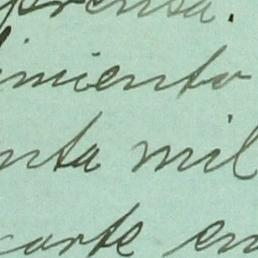 prensa.
imiento
nta mil
carte en